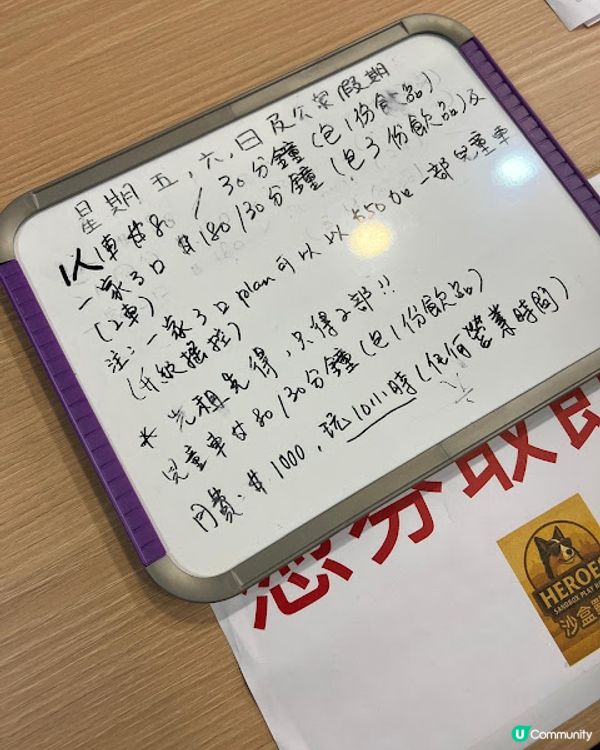 星期五,六,日及公眾假期
1人1車 $80 / 30分鐘 (包1份飲品)
一家3口 $180/30分鐘 (包3份飲品)及
(2車)
注:一家3口plan可以以$50加一部兒童車
(升級搖控)
* 先租先得,只得2部!!
兒童車 $80/30分鐘(包1份飲品)
月費:$1000,玩10小時(任何營業時間)
HEROES
沙盒
U Community